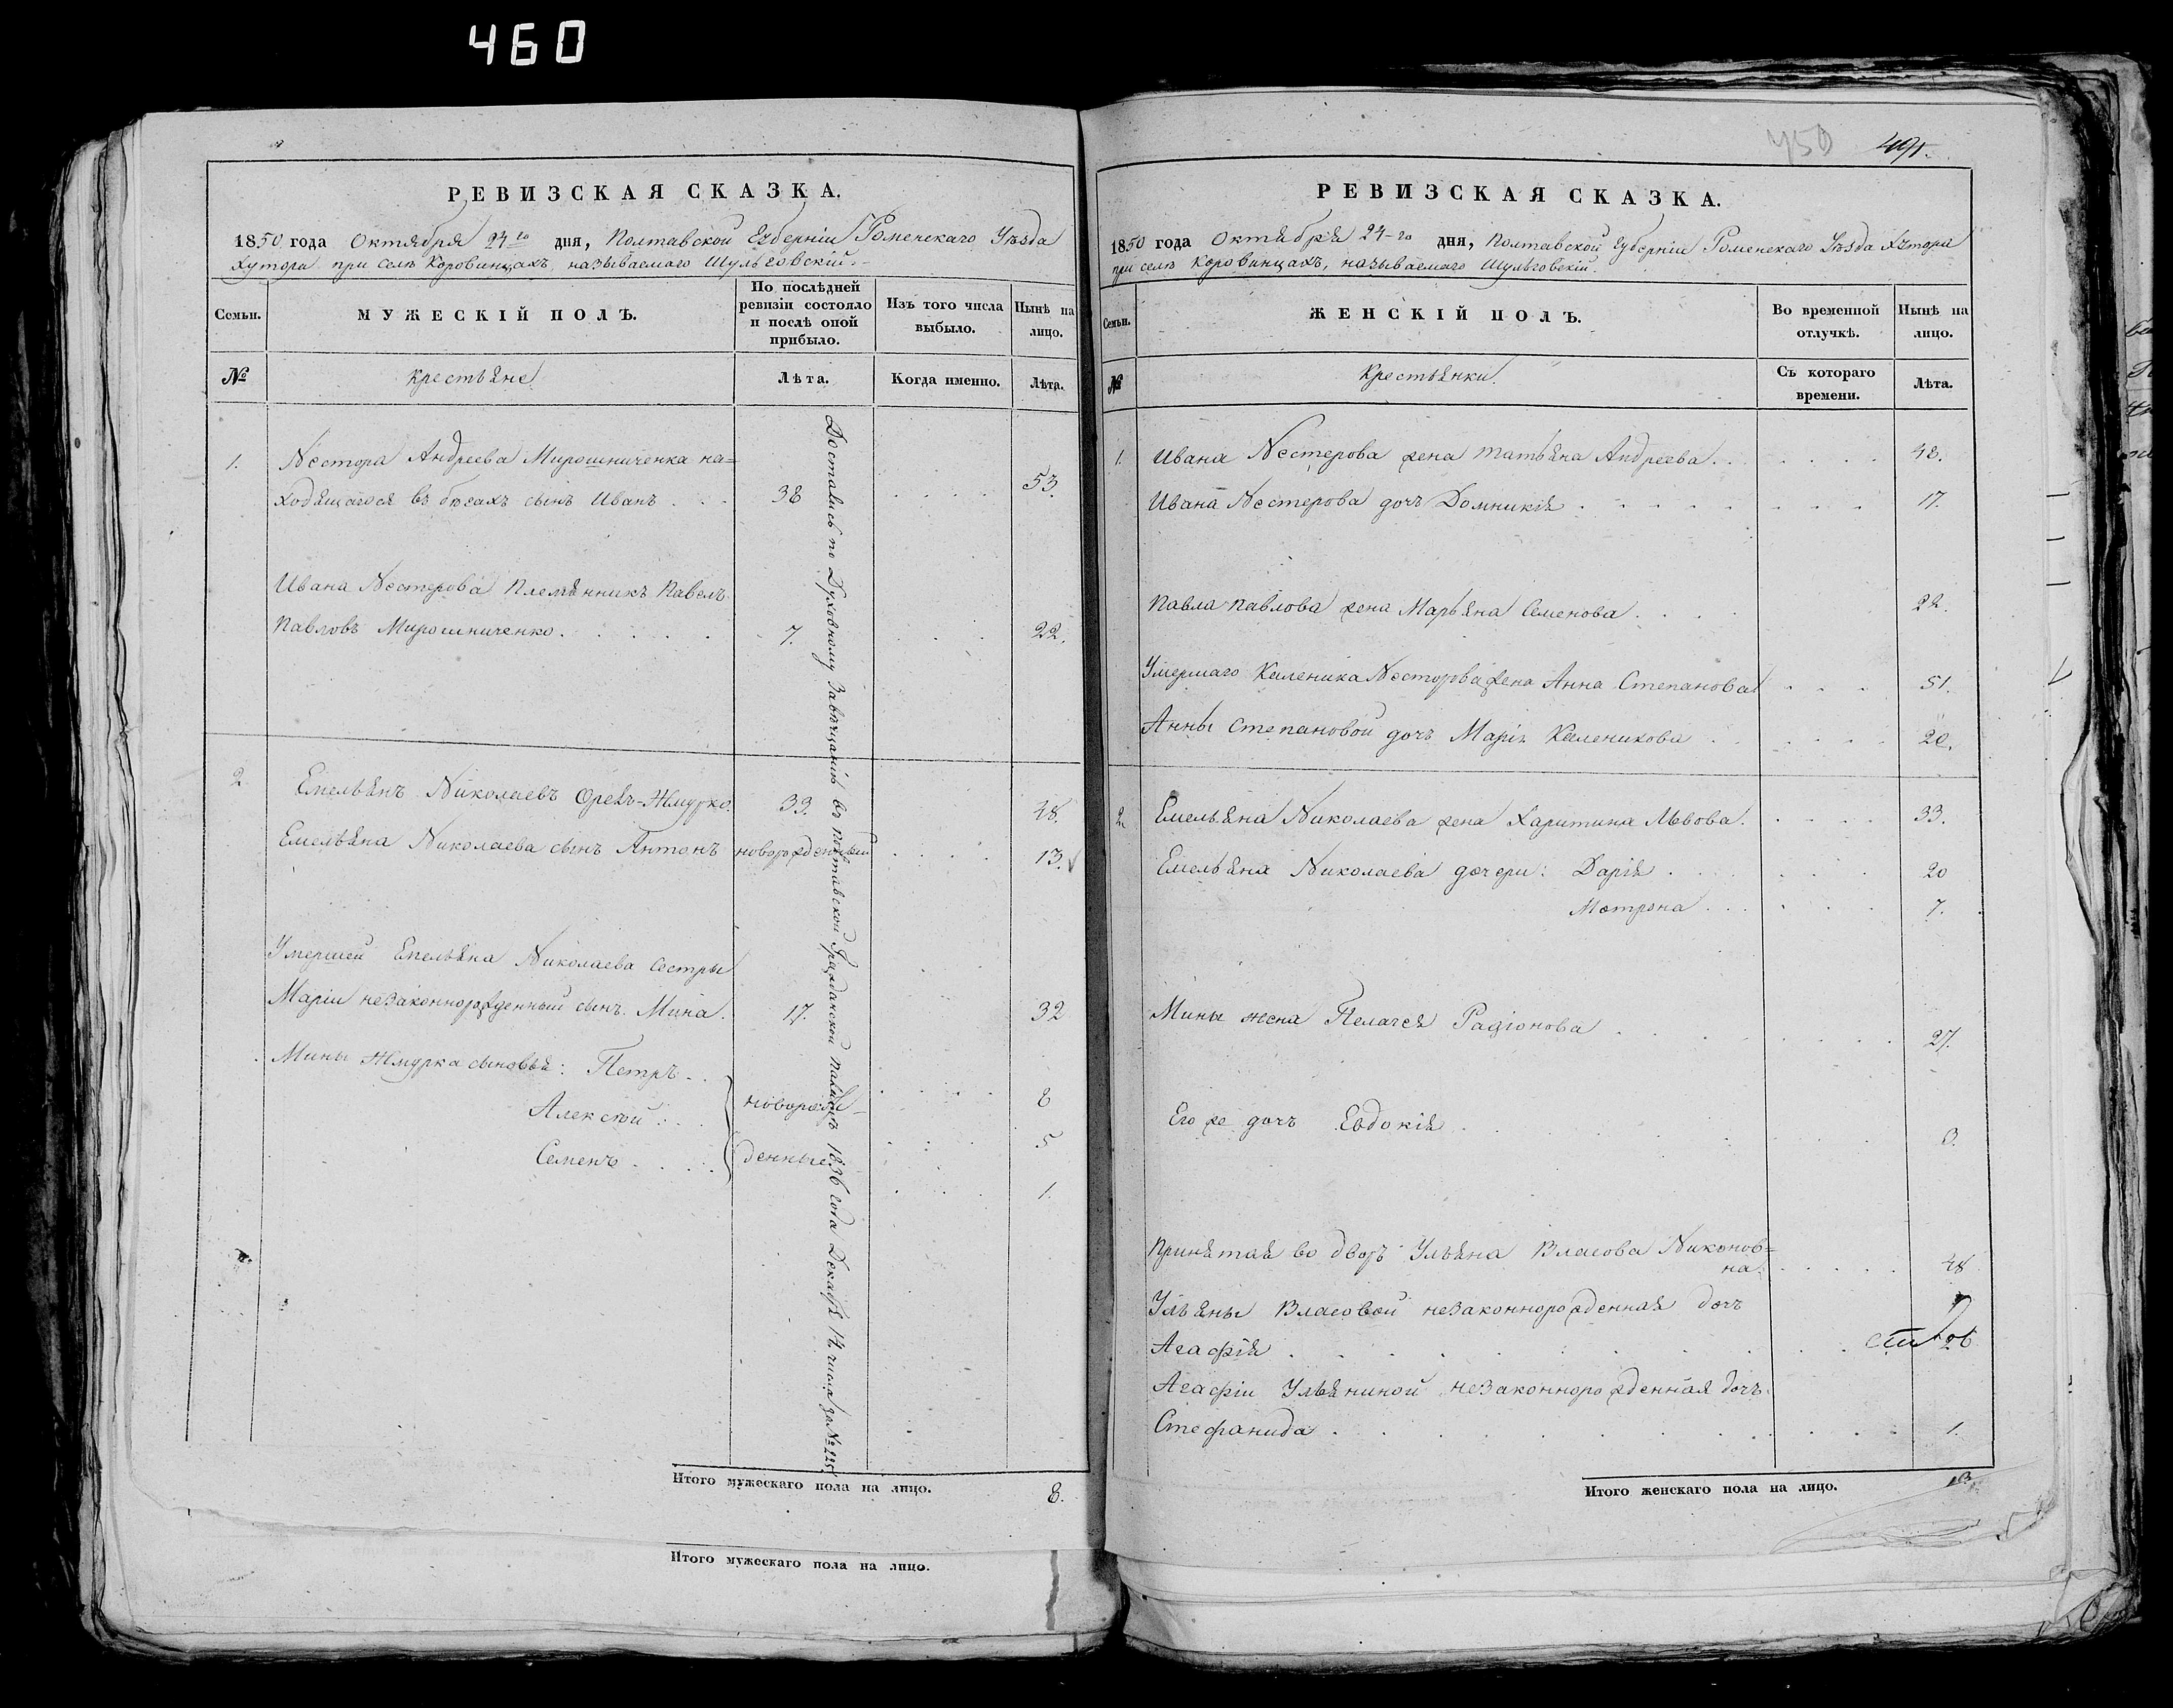 460
РЕВИЗСКАЯ СКАЗКА.
1850 года Октября 24го дня, Полтавской Губерніи Роменскаго Уѣзда
Хутора при селѣ Коровинцахъ, называемаго Шульговскій.
Семьи.
МУЖЕСКІЙ ПОЛЪ.
По послѣдней
ревизіи состояло
и послѣ оной
прибыло.
Изъ того числа
выбыло.
Нынѣ на
лицо.
№
Крестьяне
Лѣта.
Когда именно.
Лѣта.
1. Нестора Андреева Мирошниченка на=
ходящагося въ бѣгахъ сынъ Иванъ . . . 38 . . . . 53.
Ивана Нестерова племянникъ Павелъ
Павловъ Мирошниченко . . . . . 7. . . . 22.
2 Емельянъ Николаевъ Орелъ-Жмурко. 33. . . . 48.
Емельяна Николаева сынъ Антонъ новорожденный . . . . 13.
Умершей Емельяна Николаева сестры
Маріи незаконнорожденный сынъ Мина. 17. . . . 32
Мины Жмурка сыновья: Петръ . .
новорож- . . . . 8
Алексѣй . . .
5
Семенъ . . . . денные
1.
Достались по Духовному Завѣщанію въ полтавской Гражданской палатѣ 1836 года Декабр. 14. числа за № 225
Итого мужескаго пола на лицо. 8.
Итого мужескаго пола на лицо.
450 491.
РЕВИЗСКАЯ СКАЗКА.
1850 года Октября 24-го дня, Полтавской Губерніи Роменскаго Уѣзда Хутора
при селѣ Коровинцахъ, называемаго Шульговскій.
Семьи.
ЖЕНСКІЙ ПОЛЪ.
Во временной
отлучкѣ.
Нынѣ на
лицо.
№
Крестьянки.
Съ котораго
времени.
Лѣта.
1. Ивана Нестерова жена Татьяна Андреева . . . . . . 48.
Ивана Нестерова дочь Домникія . . . . . . . . 17.
Павла Павлова жена Марьяна Семенова . . . 22.
Умершаго Каленика Несторова жена Анна Степанова . . . 51.
Анны Степановой дочь Марія Каленикова . . . . . 20.
2. Емельяна Николаева жена Харитина Львова. . . . . 33.
Емельяна Николаева дочери: Дарія . . . . . 20
Мотрона . . . . . . 7.
Мины жена Пелагея Радіонова . . . . . . . 27.
Его же дочь Евдокія . . . . . . 3.
Принятая во дворъ Ульяна Власова Никонов=
на. . . . . . 48
Ульяны Власовой незаконнорожденная дочь
Агафія . . . . . . . . . . 26
Агафіи Ульяниной незаконнорожденная дочь
Стефанида . . . . . . . . . . 1.
Итого женскаго пола на лицо. 13.